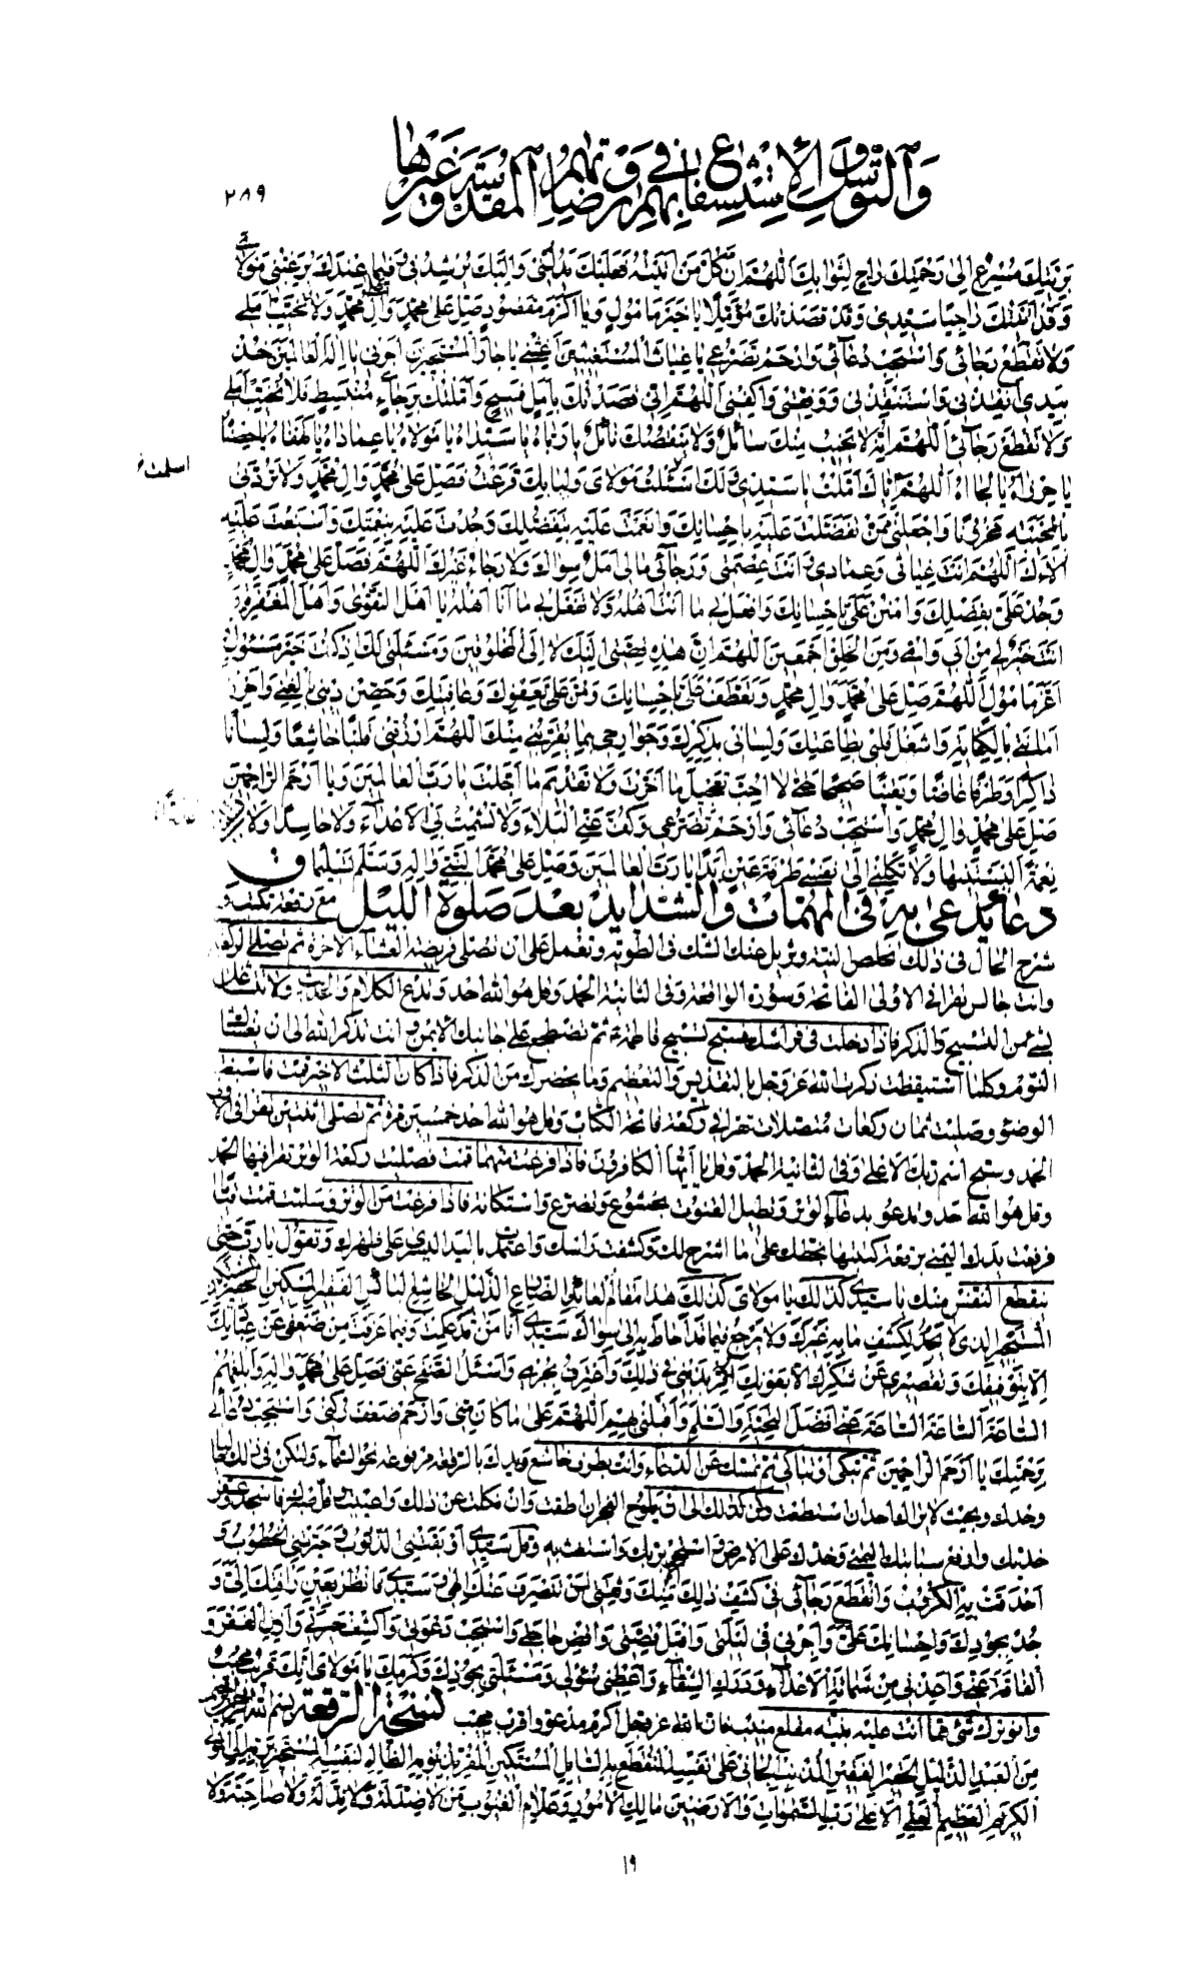 والتوسل والاستشفاع بهم في روضاتهم المقدسة وغيرها
٢٨٩
بريتك مسرع الى رحمتك راج لثوابك اللهم ان كل من اتيته فعليك يدلني واليك يرشدني وفيما عندك يرغبني مولاي
وقد اتيتك راجيا سيدي وقد قصدتك مؤملا يا خير مامول ويا اكرم مقصود صل على محمد وآل محمد ولا تخيب املي
ولا تقطع رجائي واستجب دعائي وارحم تضرعي يا غياث المستغيثين اغثني يا جار المستجيرين اجرني يا اله العالمين خذ
بيدي انقذني واستنقذني ووفقني واكفني اللهم اني قصدتك بامل فسيح واملتك برجاء منبسط فلا تخيب املي
ولا تقطع رجائي اللهم انه لا يخيب منك سائل ولا ينقصك نائل يا رباه يا سيداه يا مولاه يا عماداه يا كهفاه يا حصناه
يا حرزاه يا لجاءاه اللهم اياك املت يا سيدي ولك اسلمت مولاي ولبابك قرعت فصل على محمد وال محمد ولا تردني
اسلمت
بالخيبة محزونا واجعلني ممن تفضلت عليه باحسانك وانعمت عليه بتفضلك وجدت عليه بنعمتك واسبغت عليه
آلاءك اللهم انت غياثي وعمادي وانت عصمتي ورجائي مالي امل سواك ولا رجاء غيرك اللهم فصل على محمد وال محمد
وجد علي بفضلك وامنن علي باحسانك وافعل بي ما انت اهله ولا تفعل بي ما انا اهله يا اهل التقوى واهل المغفرة و
انت خير لي من ابي وامي ومن الخلق اجمعين اللهم ان هذه قصتي اليك لا الى المخلوقين ومسئلتي لك اذ كنت خير مسئول و
اعز مامول اللهم صل على محمد وال محمد وتعطف علي باحسانك ومن علي بعفوك وعافيتك وحصن ديني بالغنى واحرز
امانتي بالكفاية واشغل قلبي بطاعتك ولساني بذكرك وجوارحي بما يقربني منك اللهم ارزقني قلبا خاشعا ولسانا
ذاكرا وطرفا غاضا ويقينا صحيحا حتى لا احب تعجيل ما اخرت ولا تقديم ما اجلت يا رب العالمين ويا ارحم الراحمين
صل على محمد وال محمد واستجب دعائي وارحم تضرعي وكف عني البلاء ولا تشمت بي الاعداء ولا حاسدا ولا
نعمة البستنيها ولا تكلني الى نفسي طرفة عين ابدا يا رب العالمين وصل على محمد النبي واله وسلم تسليما
دعاء يدعى به في المهمات والشدايد بعد صلوة الليل مع رقعة تكتب و
شرح الحال في ذلك تخلص لنية وتزيل عنك الشك في الطوية وتعمل على ان تصلي فريضة العشاء الاخرة ثم تصلي الركعتين
وانت جالس تقرأ في الاولى الفاتحة وسورة الواقعة وفي الثانية الحمد وقل هو الله احد وتدع الكلام والحديث ولا تتشاغل
بشيء من التسبيح والذكر فاذا دخلت في فراشك فسبح تسبيح فاطمة ثم تضطجع على جانبك الايمن وانت تذكر الله الى ان يغشاك
النوم وكلما استيقظت ذكرت الله عز وجل بالتقديس والتعظيم وما يحضرك من الذكر فاذا كان الثلث الاخير قمت فاسبغت
الوضوء وصليت ثمان ركعات متصلات تقرأ في ركعة فاتحة الكتاب وقل هو الله احد خمسين مرة ثم تصلي اثنتين تقرأ في الاولى
الحمد وسبح اسم ربك الاعلى وفي الثانية الحمد وقل يا ايها الكافرون فاذا فرغت منهما قمت فصليت ركعة الوتر تقرأ فيها الحمد
وقل هو الله احد وتدعو بدعاء الوتر وتطيل القنوت بخشوع وتضرع واستكانة فاذا فرغت من الوتر وسلمت قمت قائما
فرفعت يدك اليمنى برقعة كتبتها بخطك على ما اشرح لك وكشفت راسك واعتمدت باليد اليسرى على ظهرك وتقول يا رب حتى
ينقطع النفس منك يا سيدي كذلك يا مولاي كذلك هذا مقام العائذ الضارع الذليل الخاشع البائس الفقير المسكين الحقير
المستجير الذي لا يجد لكشف ما به غيرك ولا يرجع فيما قد احاط به الى سواك سيدي انا من قد علمت وبما عرفت من ضعفي عن عبادتك
الا بتوفيقك وتقصيري عن شكرك الا بعونك اقر بذنبي في ذلك واعترف بجرمي واسئل الصفح عني فصل على محمد واله وابلغهم
الساعة الساعة الساعة عني افضل التحية والسلام واقلني بهم اللهم على ما كان مني وارحم ضعف ركني واستجب دعائي
برحمتك يا ارحم الراحمين ثم تبكي او تتباكى ثم تمسك عن الدعاء وانت بطرف خاشع ويدك بالرقعة مرفوعة نحو السماء وليكن في ذلك
وحدك وبحيث لا يراك احد ان استطعت وكن كذلك الى ان يلوح الفجر ان اطقت وان نكلت عن ذلك واعييت وقل صبرك فاسجد وعفر
خديك وارفع سبابتك اليمنى وخدك على الارض واستجر بربك واستغث به وقل سيدي اوبقتني الذنوب حيرتني الخطوب و
احدقت بي الكروب وانقطع رجائي في كشف ذلك الا منك وثقتي لن تنصرف عنك الهي وسيدي فانظر بعين رأفتك الي و
جد بجودك واحسانك علي واجرني في ليلتي واقبل قصتي واقض حاجتي واستجب دعوتي واكشف حيرتي وازل الفقر و
الفاقة عني واعذني من شماتة الاعداء ودرك الشقاء واعطني سؤلي ومسئلتي بجودك وكرمك يا مولاي انك قريب مجيب
وانو ترك شيء مما انت عليه بنية مقلع منيب فان الله عز وجل اكرم مدعو واقرب مجيب نسخة الرقعة بسم الله الرحمن الرحيم
من العبد الذليل الحقير الفقير المذنب الجاني على نفسه المنقطع به السائل المستكين المقر بذنوبه الظالم لنفسه المستجير بربه الى المولى
الكريم العظيم العلي الاعلى رب السموات والارضين مالك الامور وعلام الغيوب من لا ضد له ولا ند له ولا صاحبة ولا
١٩